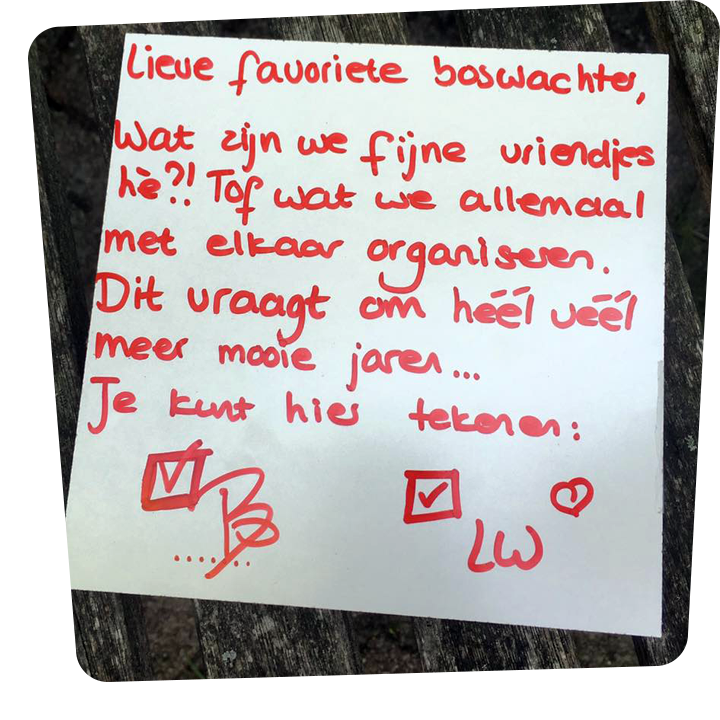 Lieve favoriete boswachter,
Wat zijn we fijne vriendjes
hè?! Tof wat we allemaal
met elkaar organiseren.
Dit vraagt om héél véél
meer mooie jaren...
Je kunt hier tekenen:
LW